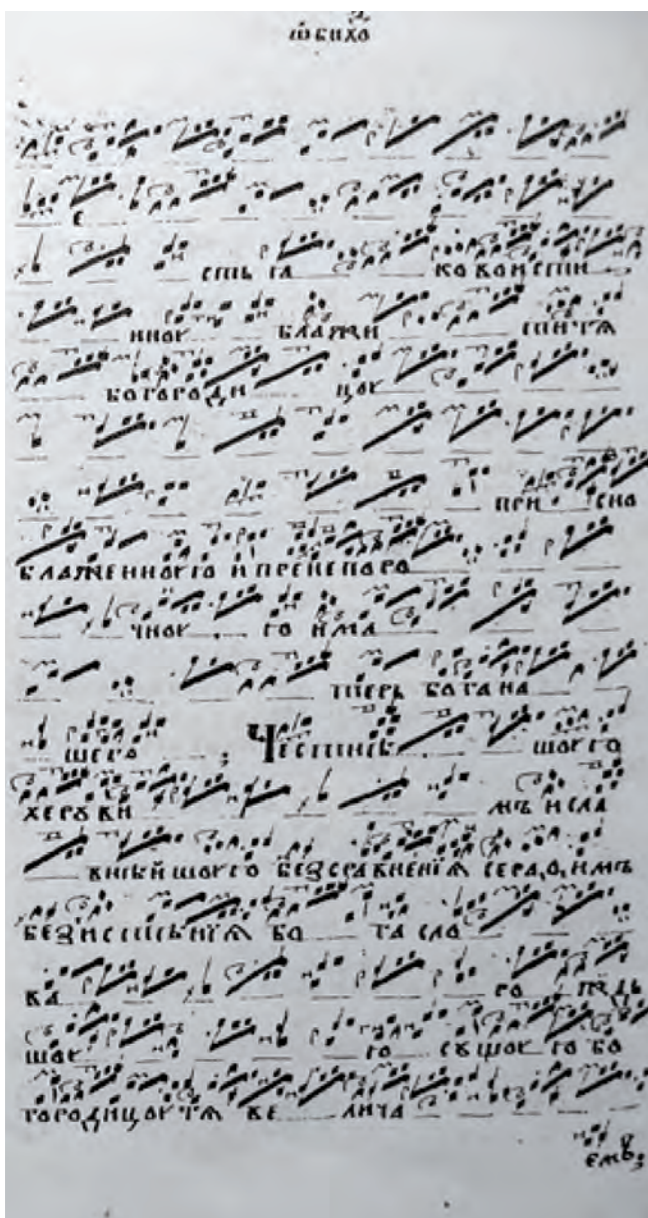 ѡбихо
е
сть ꙗ ко во исти
нноу блажи ти тѧ
богороди цоу
при сно
блаженноую ипренепоро
чноу ю има
терь бога на
шего ; Честнѣ шоую
херꙋви мъ исла
внѣйшоую безсравненїѧ серафимъ
безистлѣнїѧ бо га сло
ва ро ждь
шоу ю сꙋщоу ю бо
городицоу тѧ ве лича
емъ